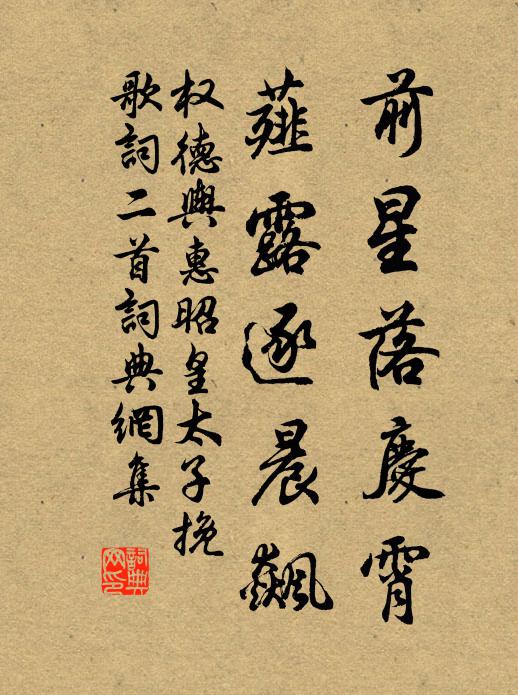 前星落慶霄
薤露逐晨飆
权德與惠昭皇太子挽
歌詞二首詞典網集
詞典
网印